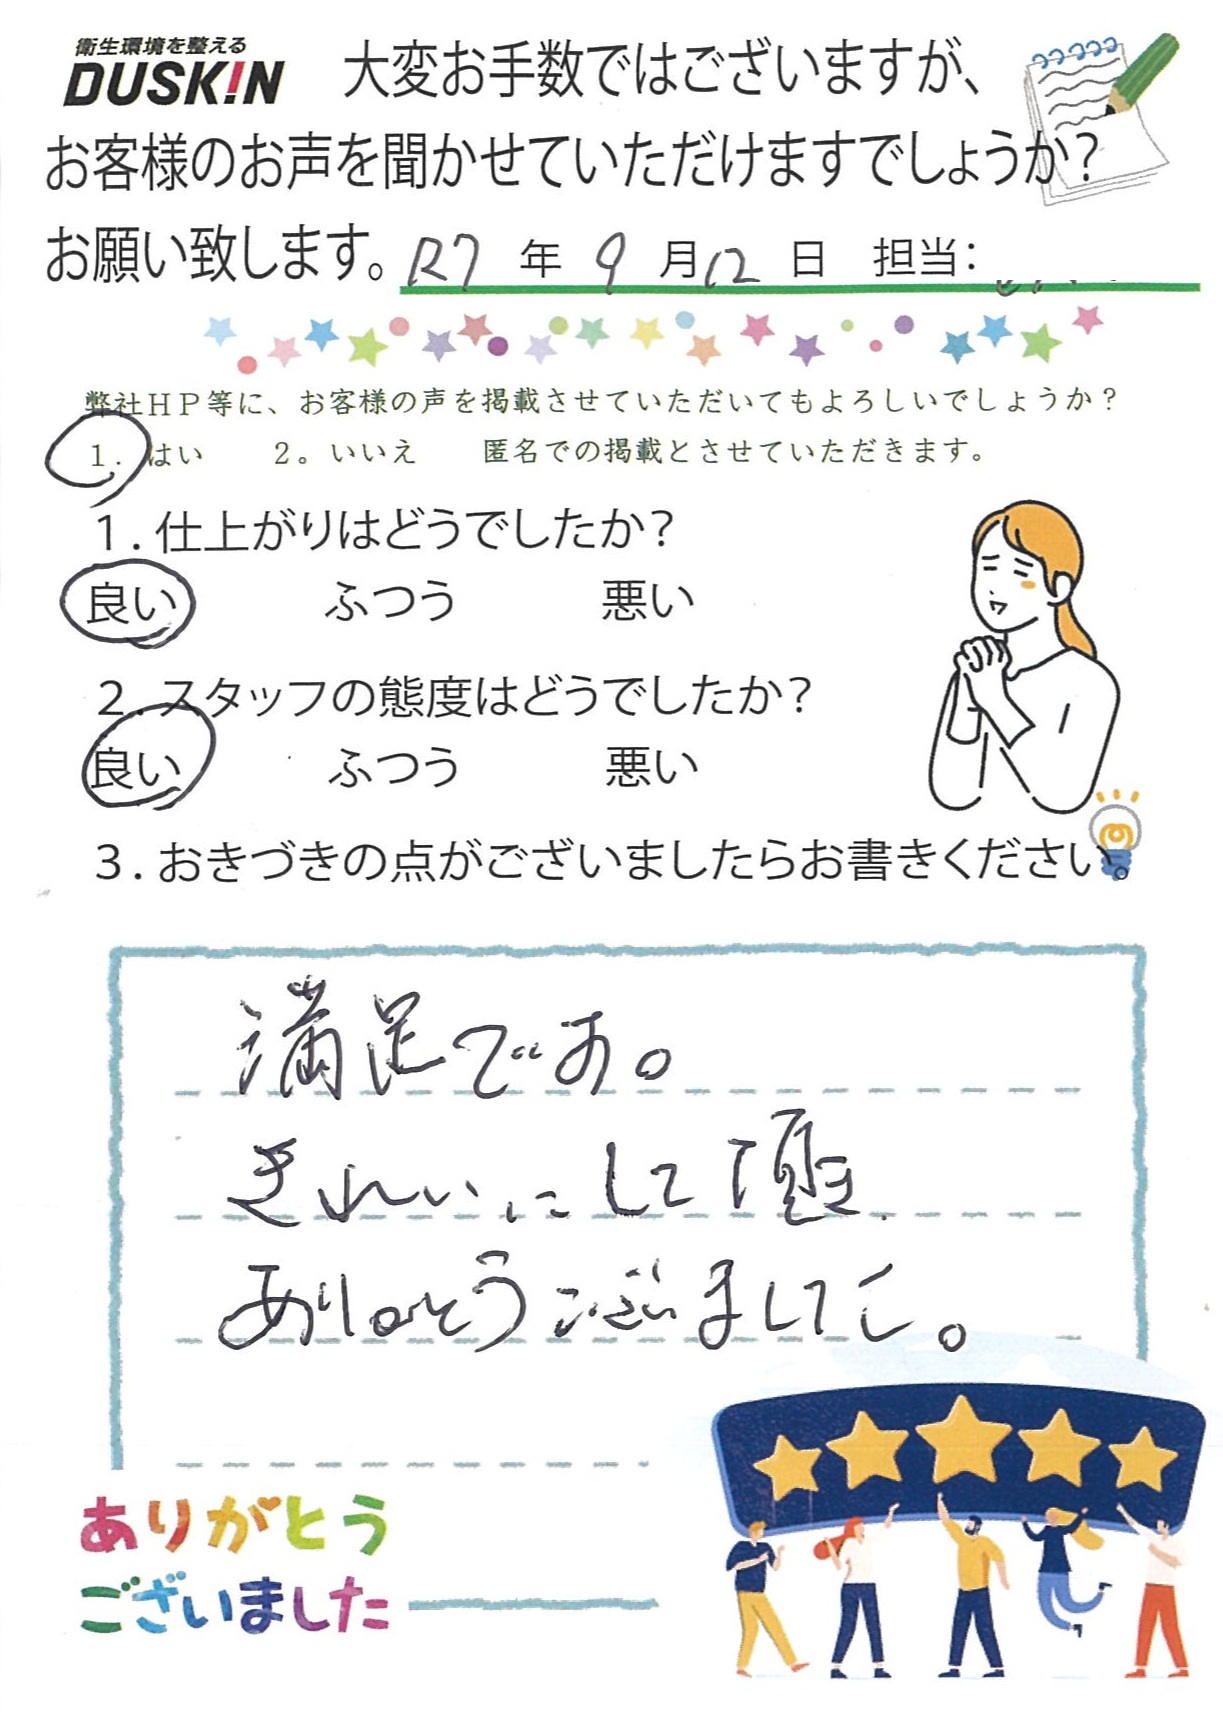 衛生環境を整える
DUSKIN
大変お手数ではございますが、
お客様のお声を聞かせていただけますでしょうか?
お願い致します。 R7 年 9 月 12 日 担当:
弊社HP等に、お客様の声を掲載させていただいてもよろしいでしょうか?
1. はい 2。いいえ 匿名での掲載とさせていただきます。
1.仕上がりはどうでしたか?
良い ふつう 悪い
2.スタッフの態度はどうでしたか?
良い ふつう 悪い
3.おきづきの点がございましたらお書きください。
満足です。
きれいにして頂き
ありがとうございまして。
ありがとう
ございました